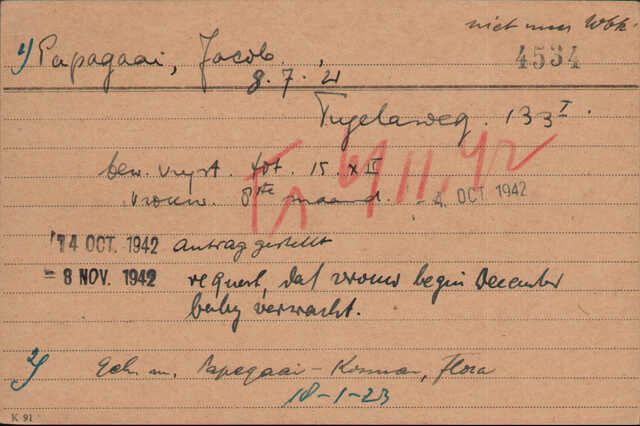 niet naar Wbk.
4534
1) Papagaai, Jacob.
8.7.21
Tugelaweg. 133 I.
bew. vrijst. tot. 15. XII
vrouw. 8ste maand. - 4. OCT 1942
14 OCT. 1942 Antrag gestellt
- 8 NOV. 1942 request, dat vrouw begin December
baby verwacht.
2) Geh. m. Papegaai-Kosman, Flora
18-1-23
K 91